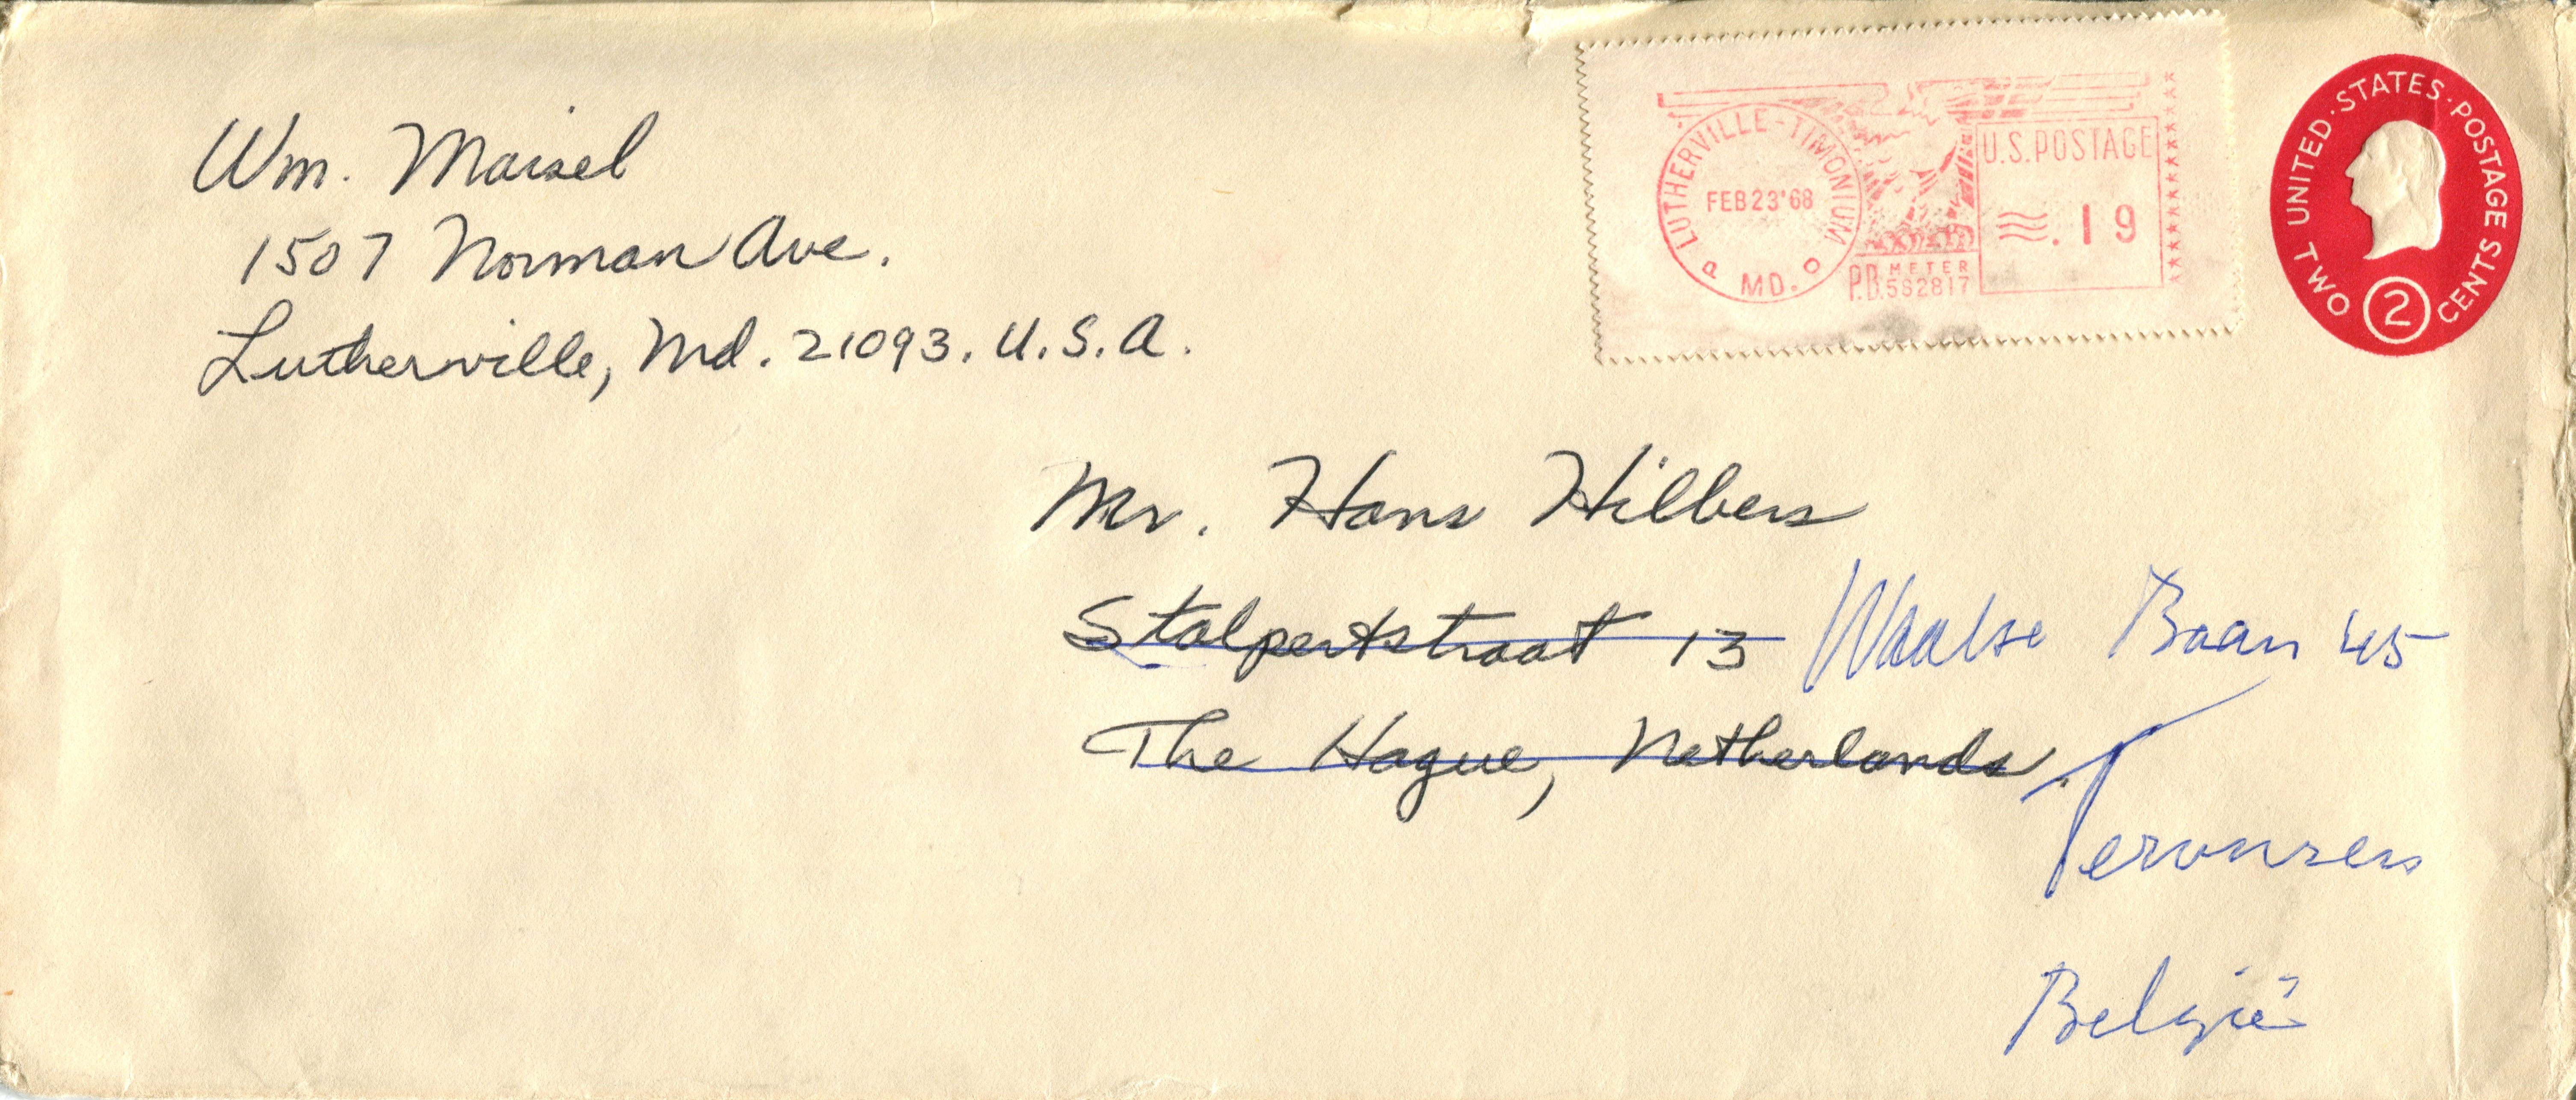 Wm. Maisel
1507 Norman Ave.
Lutherville, Md. 21093. U.S.A.
LUTHERVILLE-TIMONIUM
FEB 23 '68
P MD. O
P.B. METER
562817
U.S. POSTAGE
.19
UNITED · STATES · POSTAGE
TWO 2 CENTS
Mr. Hans Hilbers
Stalpertstraat 13 Waalse Baan 45
The Hague, Netherlands.
Tervuren
België